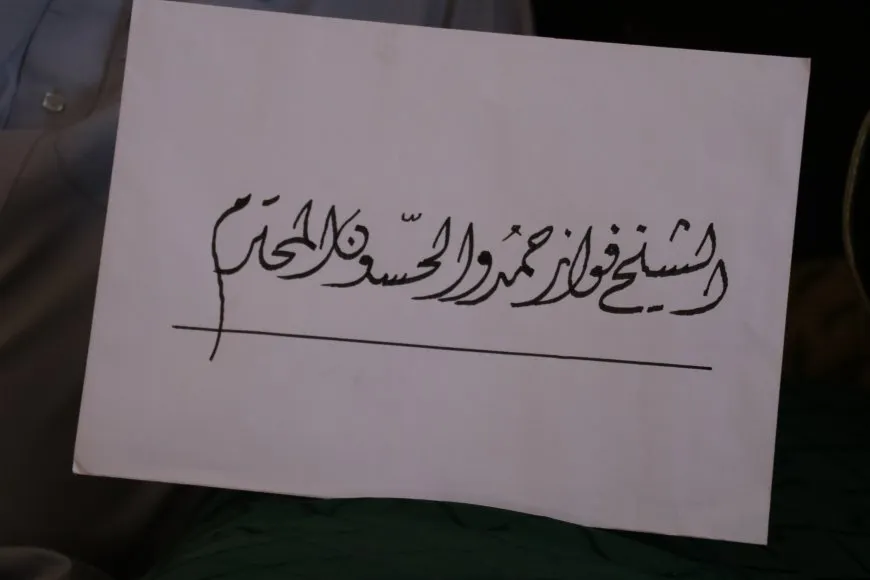 الشيخ فواز حمُدو الحسّون المحترم